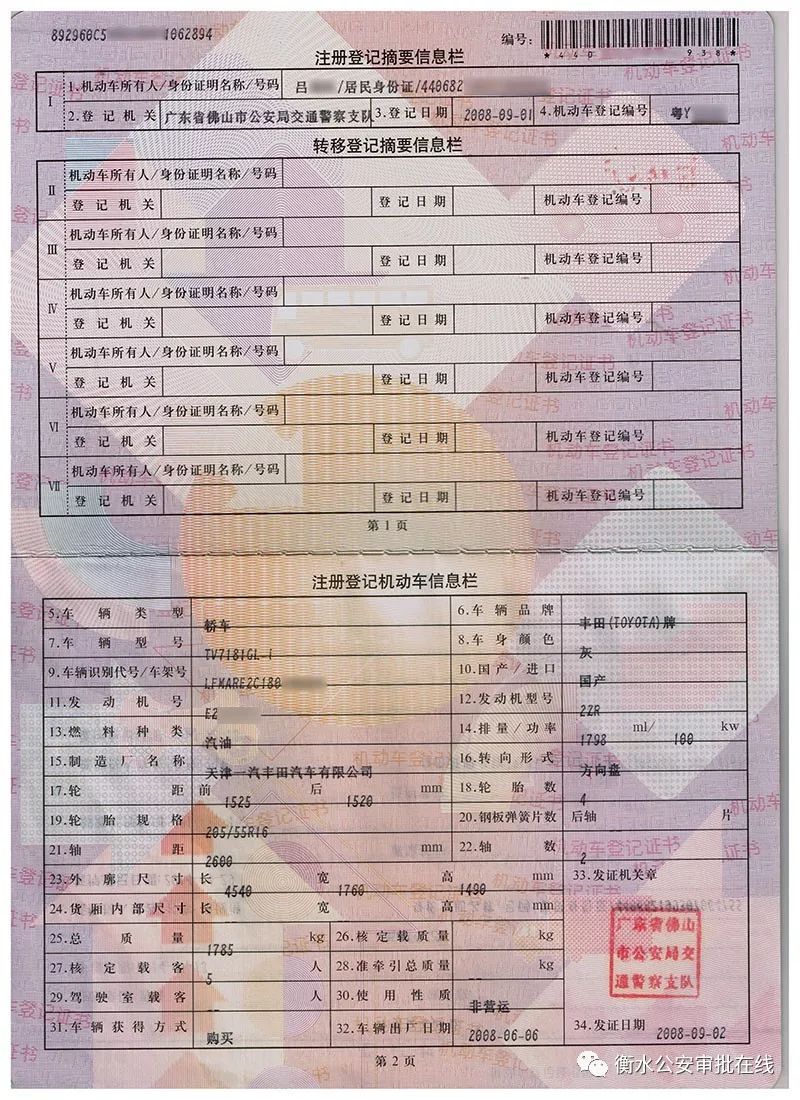 892960C5 1062894
编号:
*440 938*
注册登记摘要信息栏
I 1.机动车所有人/身份证明名称/号码 吕 /居民身份证/440682
2.登记机关 广东省佛山市公安局交通警察支队 3.登记日期 2008-09-01 4.机动车登记编号 粤Y
转移登记摘要信息栏
II 机动车所有人/身份证明名称/号码
登记机关 登记日期 机动车登记编号
III 机动车所有人/身份证明名称/号码
登记机关 登记日期 机动车登记编号
IV 机动车所有人/身份证明名称/号码
登记机关 登记日期 机动车登记编号
V 机动车所有人/身份证明名称/号码
登记机关 登记日期 机动车登记编号
VI 机动车所有人/身份证明名称/号码
登记机关 登记日期 机动车登记编号
VII 机动车所有人/身份证明名称/号码
登记机关 登记日期 机动车登记编号
第1页
注册登记机动车信息栏
5.车辆类型 轿车 6.车辆品牌 丰田(TOYOTA)牌
7.车辆型号 TV7181GL-i 8.车身颜色 灰
9.车辆识别代号/车架号 LFMARE2C180 10.国产/进口 国产
11.发动机号 E2 12.发动机型号 2ZR
13.燃料种类 汽油 14.排量/功率 1798 ml/ 100 kw
15.制造厂名称 天津一汽丰田汽车有限公司 16.转向形式 方向盘
17.轮距 前 1525 后 1520 mm 18.轮胎数 4
19.轮胎规格 205/55R16 20.钢板弹簧片数 后轴 片
21.轴距 2600 mm 22.轴数 2
23.外廓尺寸 长 4540 宽 1760 高 1490 mm 33.发证机关章
24.货厢内部尺寸 长 宽 高 mm
25.总质量 1785 kg 26.核定载质量 kg
27.核定载客 5 人 28.准牵引总质量 -- kg
29.驾驶室载客 -- 人 30.使用性质 非营运
31.车辆获得方式 购买 32.车辆出厂日期 2008-06-06 34.发证日期 2008-09-02
广东省佛山
市公安局交
通警察支队
第2页
衡水公安审批在线